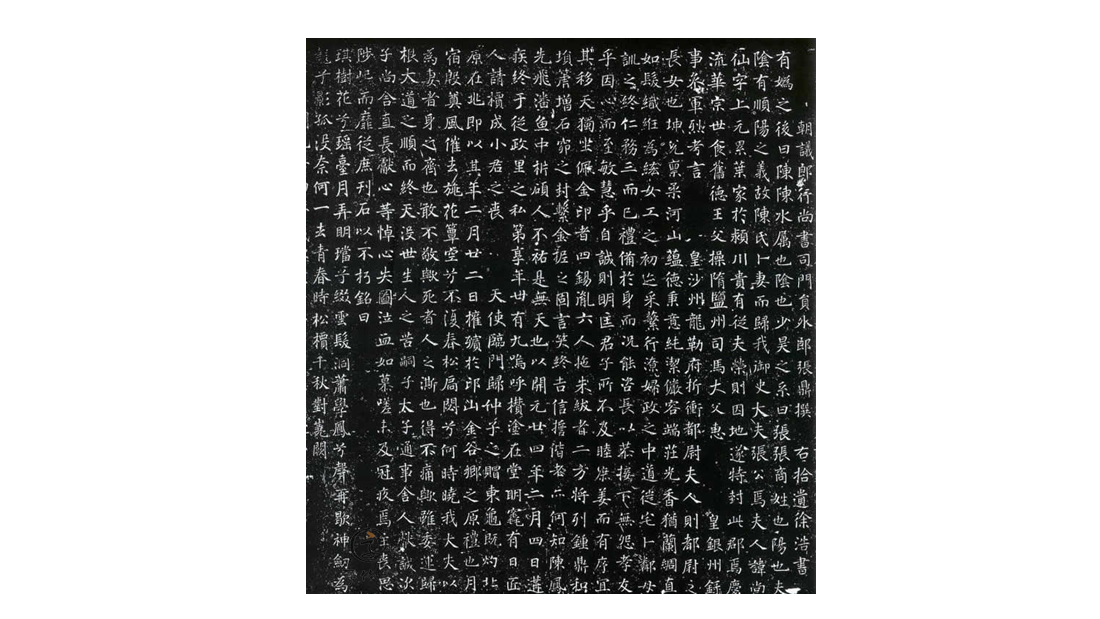 朝議郎行尚書司門員外郎張鼎撰　右拾遺徐浩書
有媯之後曰陳陳水屬也陰也少昊之系曰張張商姓也陽也夫
陰有順陽之義故陳氏卜妻而歸我御史大夫張公焉夫人諱尚
仙字上元累葉家於潁川貴有從夫榮則因地遂特封此郡焉慶
流華宗世食舊德王父操隋鹽州司馬大父惠　皇銀州錄
事參軍烈考言　皇沙州龍勒府折衝都尉夫人則都尉之
長女也坤兒稟柔河山蘊德秉意純潔儀容端莊光香猶蘭綢直
如髮織紝為絃女工之初迄采蘩行潦婦政之中道從宅卜鄰母
訓之終仁務三而已禮備於身而況能咨長以恭接下無怨孝友
乎因心而至敏慧乎自誠則明匡君子所不及睦庶姜而有序宜
其移天獨坐佩金印者四錫胤六人拖朱紱者二方將列鍾鼎和
塤箎增石窌之封繫金柅之固言笑終吉信誓偕老亦何知陳鳳
先飛潘魚中拆碩人不祐是無天也以開元廿四年二月四日遘
疾終于從政里之私第享年卌有九嗚呼欑塗在堂明竁有日臣
人請櫝成小君之喪　天使臨門歸仲子之賵東龜既灼北
原在兆即以其年二月廿二日權殯於邙山金谷鄉之原禮也月
宿殷奠風催去旐花簟空兮不復春松扃閟兮何時曉我大夫以
為妻者身之齊也敢不敬歟死者人之澌也得不痛歟雖委運歸
根大道之順而終天沒世生人之苦嗣子太子通事舍人誠次
子尚舍直長獻心等悼心失圖泣血如慕嗟未及冠疚焉主喪思
陟屺而靡從庶刊石以不朽銘曰
琪樹花兮瑤臺月弄明璫兮綴雲髮洞簫學鳳兮聲再歇神劒為
龍兮影孤沒奈何一去青春時松檟千秋對嵩闕